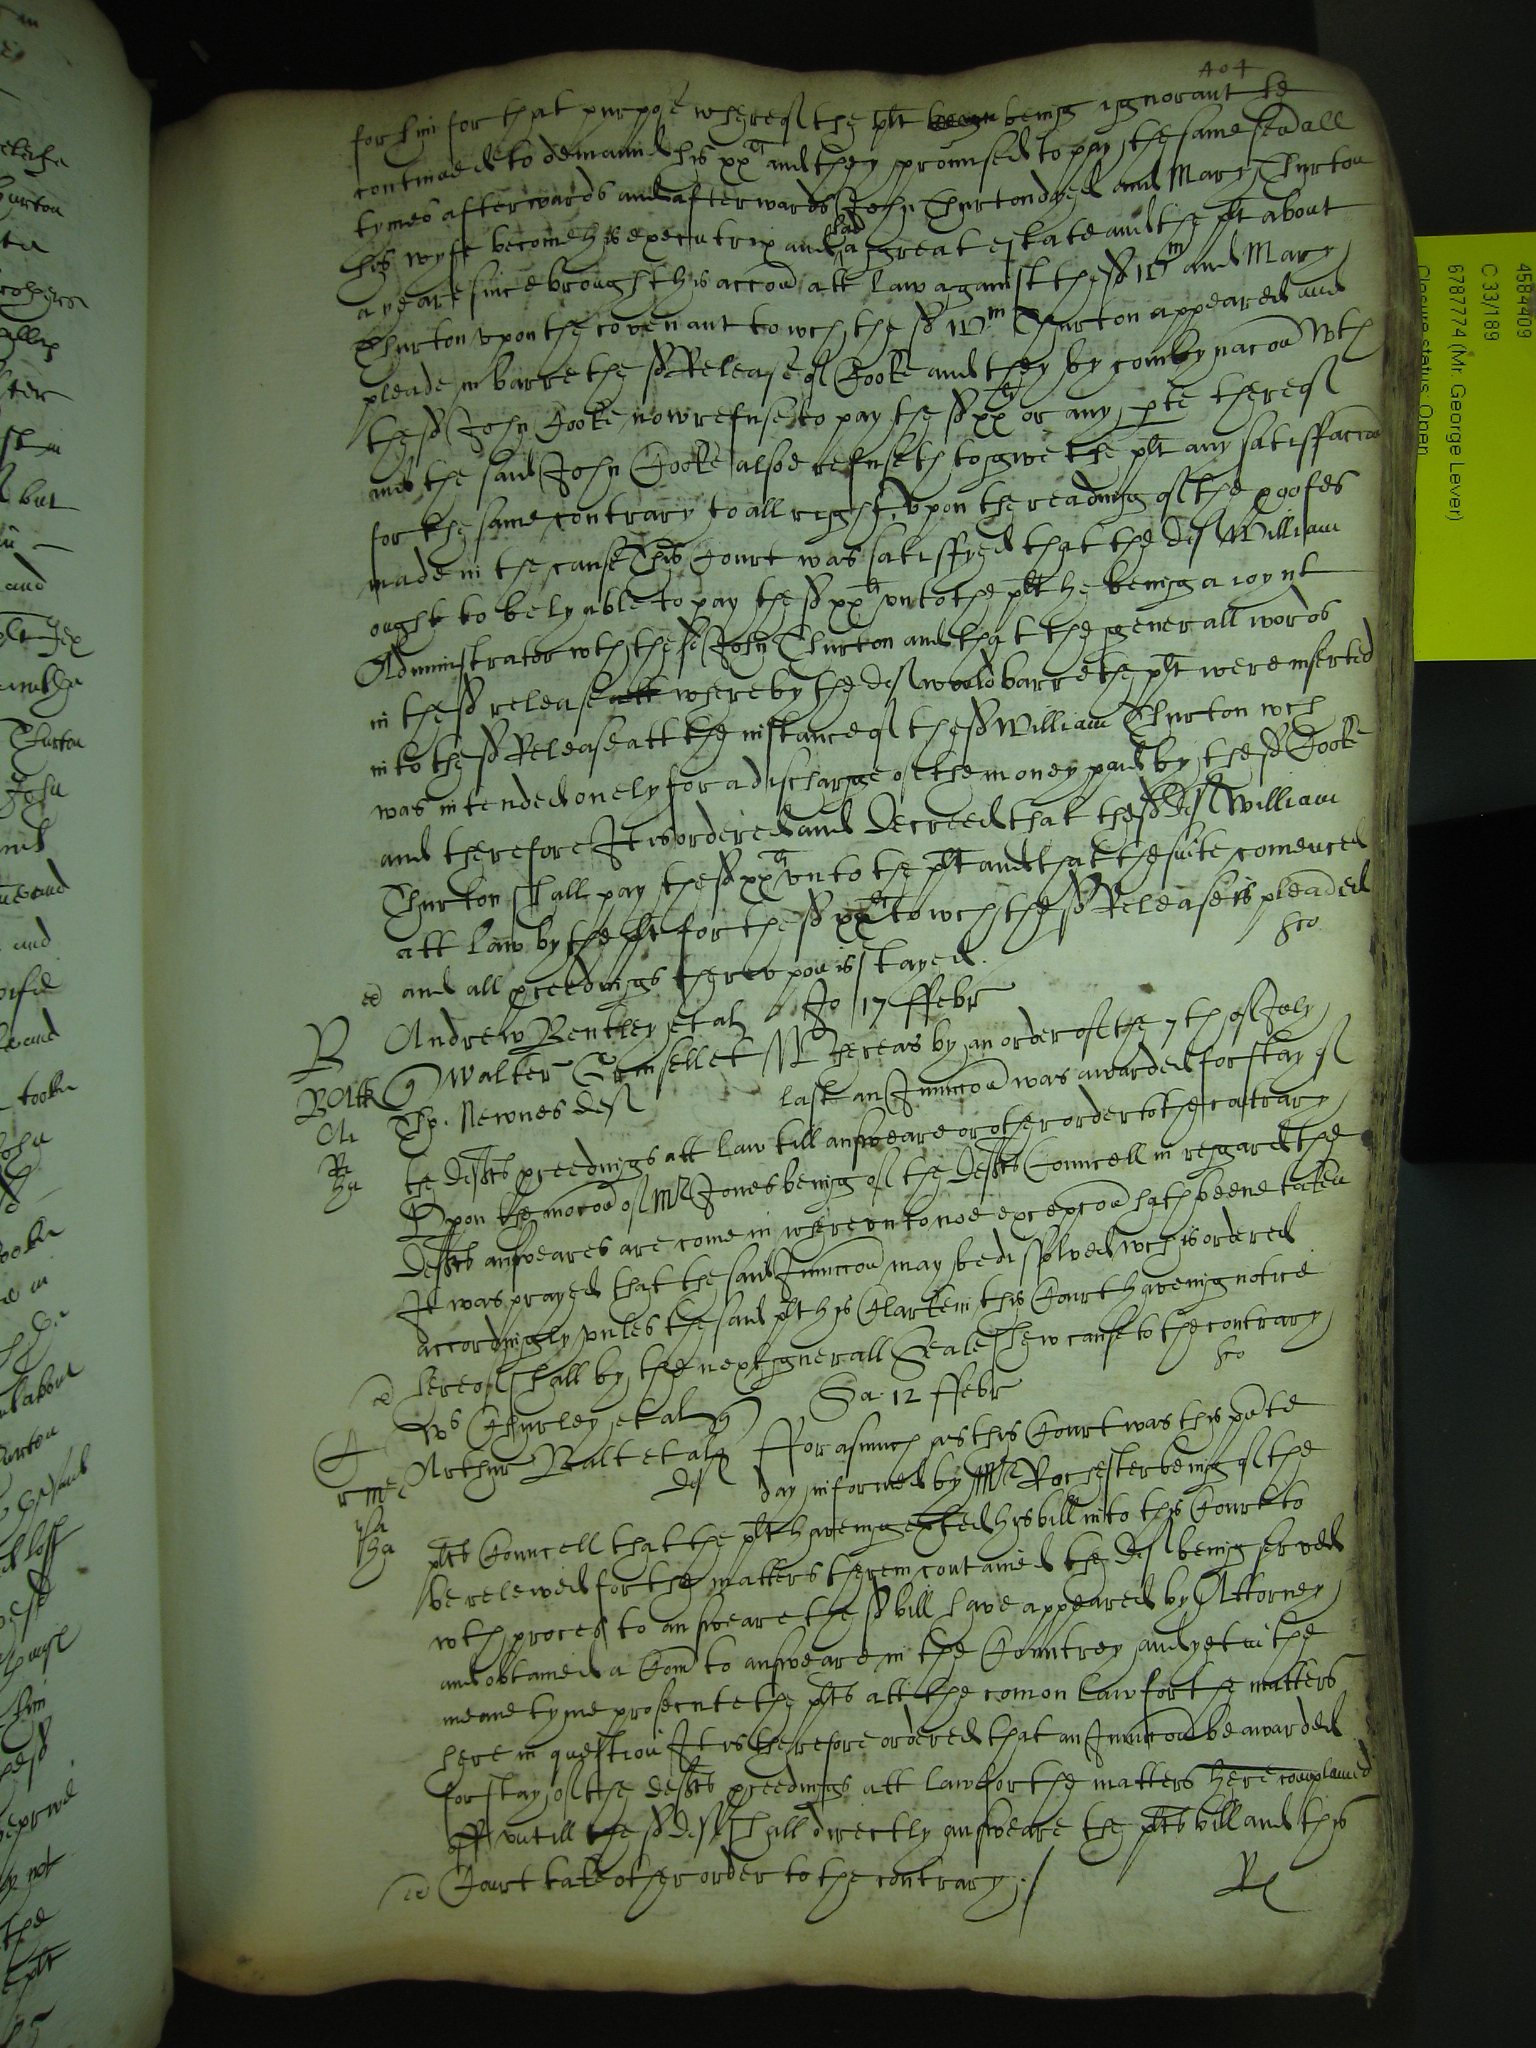 404
for him for that purpose whereof the plt being ignorant he
continued to demaund his xx li and they promised to pay the same seu'all
tymes afterwards and afterwards John Thurton dyed and Mary Thurton
his wyfe become his executrix and had a great estate and the plt about
a yeare since brought his accon att law against the sd Wm and Mary
Thurton vpon the covenant to wch the sd Wm Thurton appeared and
pleade in barre the sd Release of Cooke and they by combynacon wth
the sd John Cooke now refuse to pay the sd xx li or any pte thereof
and the said John Cooke alsoe refuseth to give the plt any satisfaccon
for the same contrary to all right, vpon the reading of the proofes
made in the cause This Court was satisfyed that the def William
ought to be lyable to pay the sd xx li vnto the plt he being a ioynt
Administrator wth the sd John Thurton and that the generall words
in the sd release whereby the def would barre the plt were inserted
into the sd Release att the instance of the sd William Thurton wch
was intended onely for a discharge of the money paid by the sd Cooke
and therefore It is ordered and decreed that the sd def William
Thurton shall pay the sd xx li vnto the plt and that the suite comenced
att law by the plt for the sd xx li to wch the sd Release is pleaded
and all pceedings therevpon is stayed.
Jo 17 ffebr
B Andrew Bentley et al
Walter et Whereas by an order of the 7th of July
Tho. Newnes def last an Iniunccon was awarded for stay of
the defts pceedings att law till answeare or other order to the contrary
Vpon the mocon of Mr Jones being of the defts Councell in regard the
defts answeares are come in wherevnto noe excepcon hath beene taken
It was prayed that the said Iniunccon may be dissolved wch is ordered
accordingly vnles the said plt his Clarke in this Court haveing notice
hereof shall by the next generall Seale shew cause to the contrary
Sa. 12 ffebr
Churley et al
Arthur Balt et al fforasmuch as this Court was this pnte
def day informed by Mr Rochester being of the
plts Councell that the plt haveing exhted his bill into this Court to
be releived for the matters therein contained the def being served
wth proces to answeare the sd bill have appeared by Attorney
and obtained a Com to answeare in the Countrey and yet in the
meane tyme prosecute the plts att the comon law for the matters
here in question It is therefore ordered that an Iniunccon be awarded
for stay of the defts pceedings att law for the matters here complained
off vntill the sd def shall directly answeare the plts bill and this
Court take other order to the contrary./
4584409
C 33/189
6787774 (Mr. George Lever)
Closure status: Open